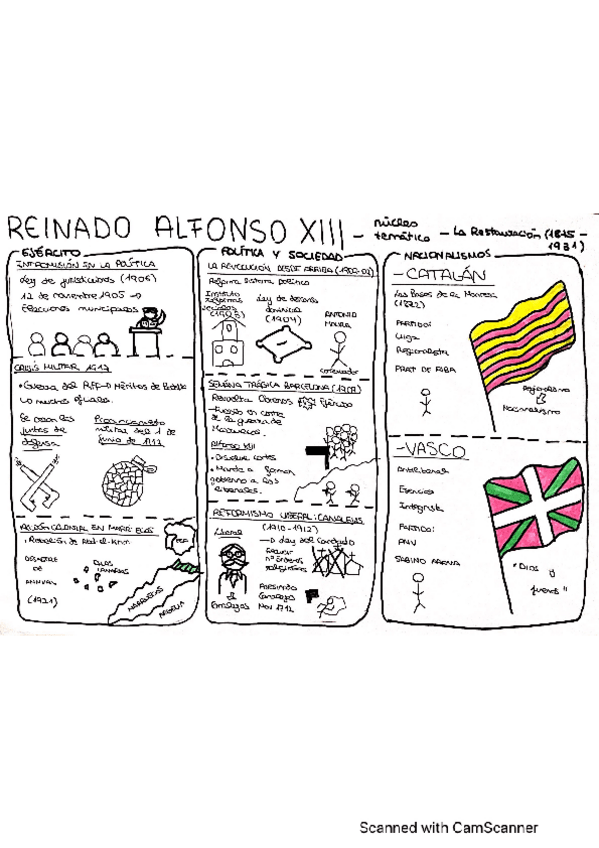 REINADO ALFONSO XIII - núcleo
temático - La Restauración (1875 -
1931)
EJÉRCITO
INTROMISIÓN EN LA POLÍTICA
Ley de jurisdicciones (1906)
12 de noviembre 1905 →
Elecciones municipales
CRISIS MILITAR 1917
Se crean las
juntas de
defensa
Pronunciamiento
militar del 1 de
junio de 1917
ACCIÓN COLONIAL EN MARRUECOS
• Rebelión de Abd-el-Krim
DESASTRE
DE
ANNUAL
(1921)
ISLAS
CANARIAS
MARRUECOS
ARGELIA
POLÍTICA Y SOCIEDAD
LA REVOLUCIÓN DESDE ARRIBA
Reforma sistema político
Instituto
Reformas
sociales
(1903)
Ley de descanso
dominical
(1904)
ANTONIO
MAURA
conservador
SEMANA TRÁGICA BARCELONA (1909)
Revuelta Obreros
Ejército
en contra
de la guerra de
Marruecos.
Alfonso XIII
• Disuelve cortes
• Manda a formar
gobierno a los
liberales.
REFORMISMO LIBERAL: CANALEJAS
(1910-1912)
Liberal
→ Ley del Candado
nº órdenes
religiosas
J.
Canalejas
ASESINADO
Canalejas
Nov 1912
NACIONALISMOS
- CATALÁN
Las Bases de Manresa
(1892)
PARTIDO:
Lliga
Regionalista
PRAT DE RIBA
Regionalismo
Nacionalismo
- VASCO
Antiliberal
Esencias
Integrista
PARTIDO:
PNV
SABINO ARANA
"DIOS y
fueros"
Scanned with CamScanner